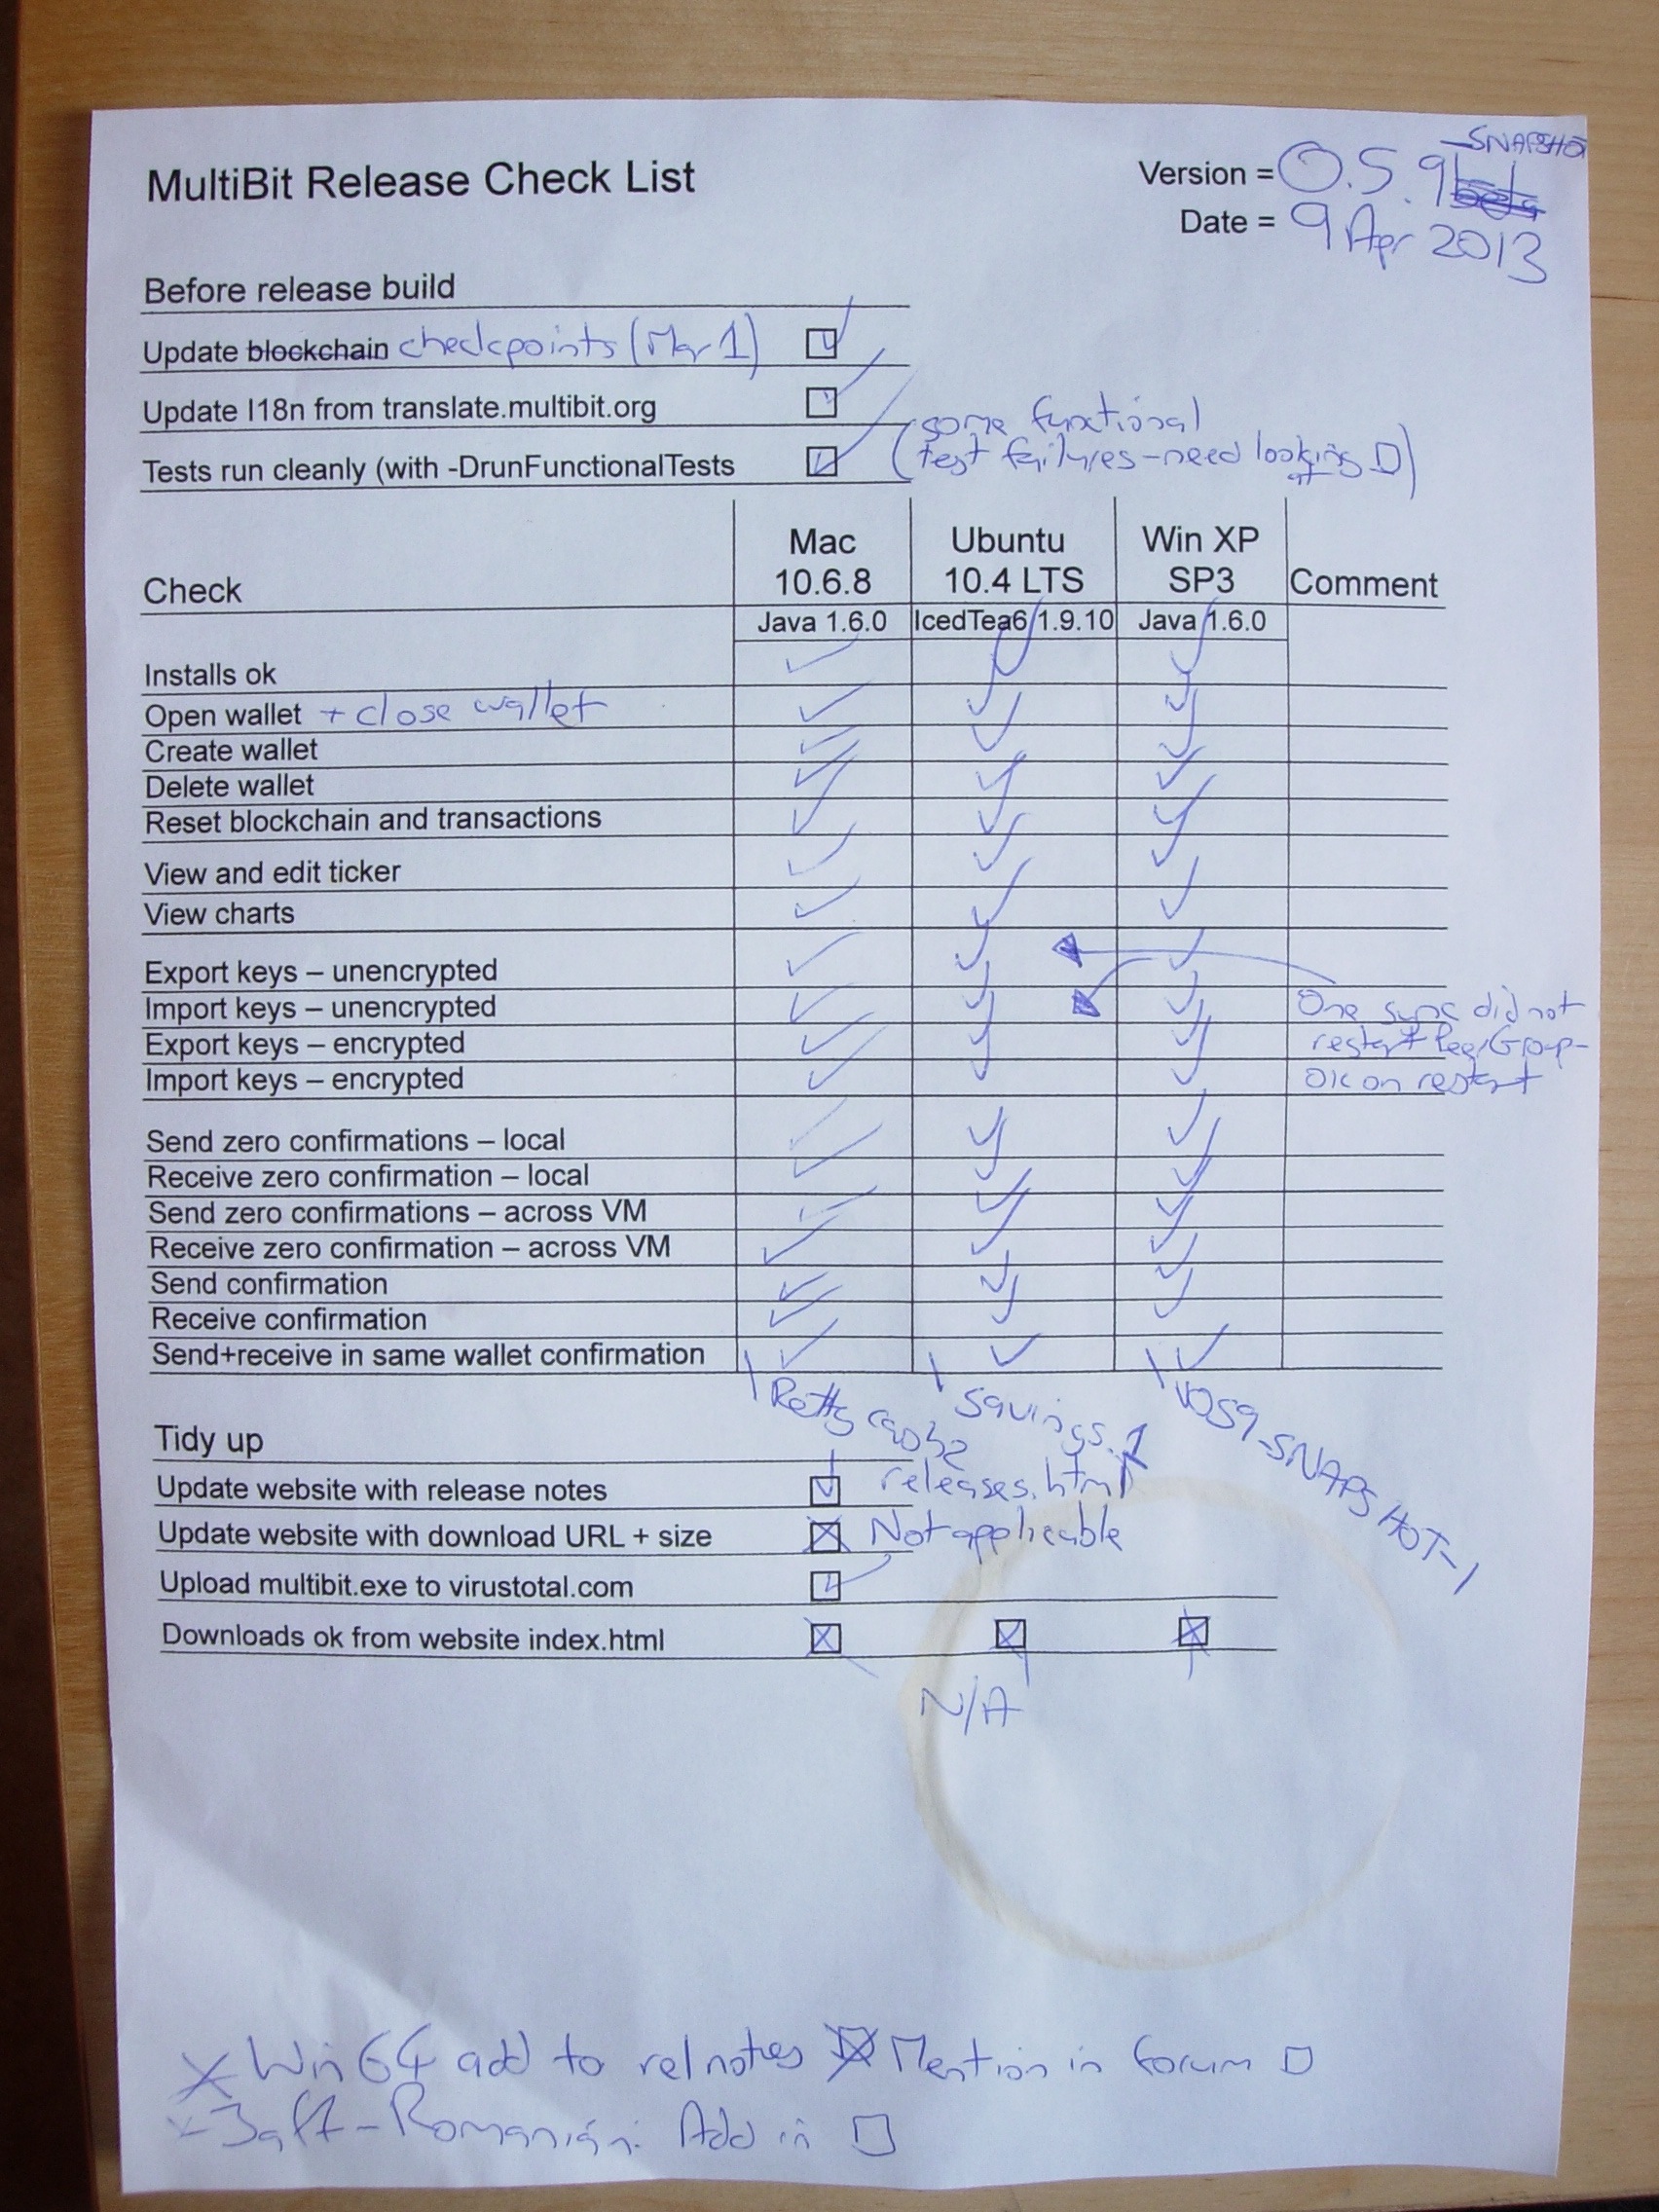 -SNAPSHOT
MultiBit Release Check List
Version = 0.5.9 beta
Date = 9 Apr 2013
Before release build
Update blockchain checkpoints (Mar 1)
Update I18n from translate.multibit.org
Tests run cleanly (with -DrunFunctionalTests
(some functional
test failures - need looking at)
Check
Mac
10.6.8
Ubuntu
10.4 LTS
Win XP
SP3
Comment
Java 1.6.0 IcedTea6 1.9.10 Java 1.6.0
Installs ok
Open wallet + close wallet
Create wallet
Delete wallet
Reset blockchain and transactions
View and edit ticker
View charts
Export keys – unencrypted
Import keys – unencrypted One sync did not
Export keys – encrypted restart PeerGroup -
Import keys – encrypted OK on restart
Send zero confirmations – local
Receive zero confirmation – local
Send zero confirmations – across VM
Receive zero confirmation – across VM
Send confirmation
Receive confirmation
Send+receive in same wallet confirmation
savings.1
V059-SNAPSHOT-1
Tidy up
Update website with release notes releases.html
Update website with download URL + size Not applicable
Upload multibit.exe to virustotal.com
Downloads ok from website index.html
N/A
Win 64 add to rel notes Mention in forum
- Romanian: Add in